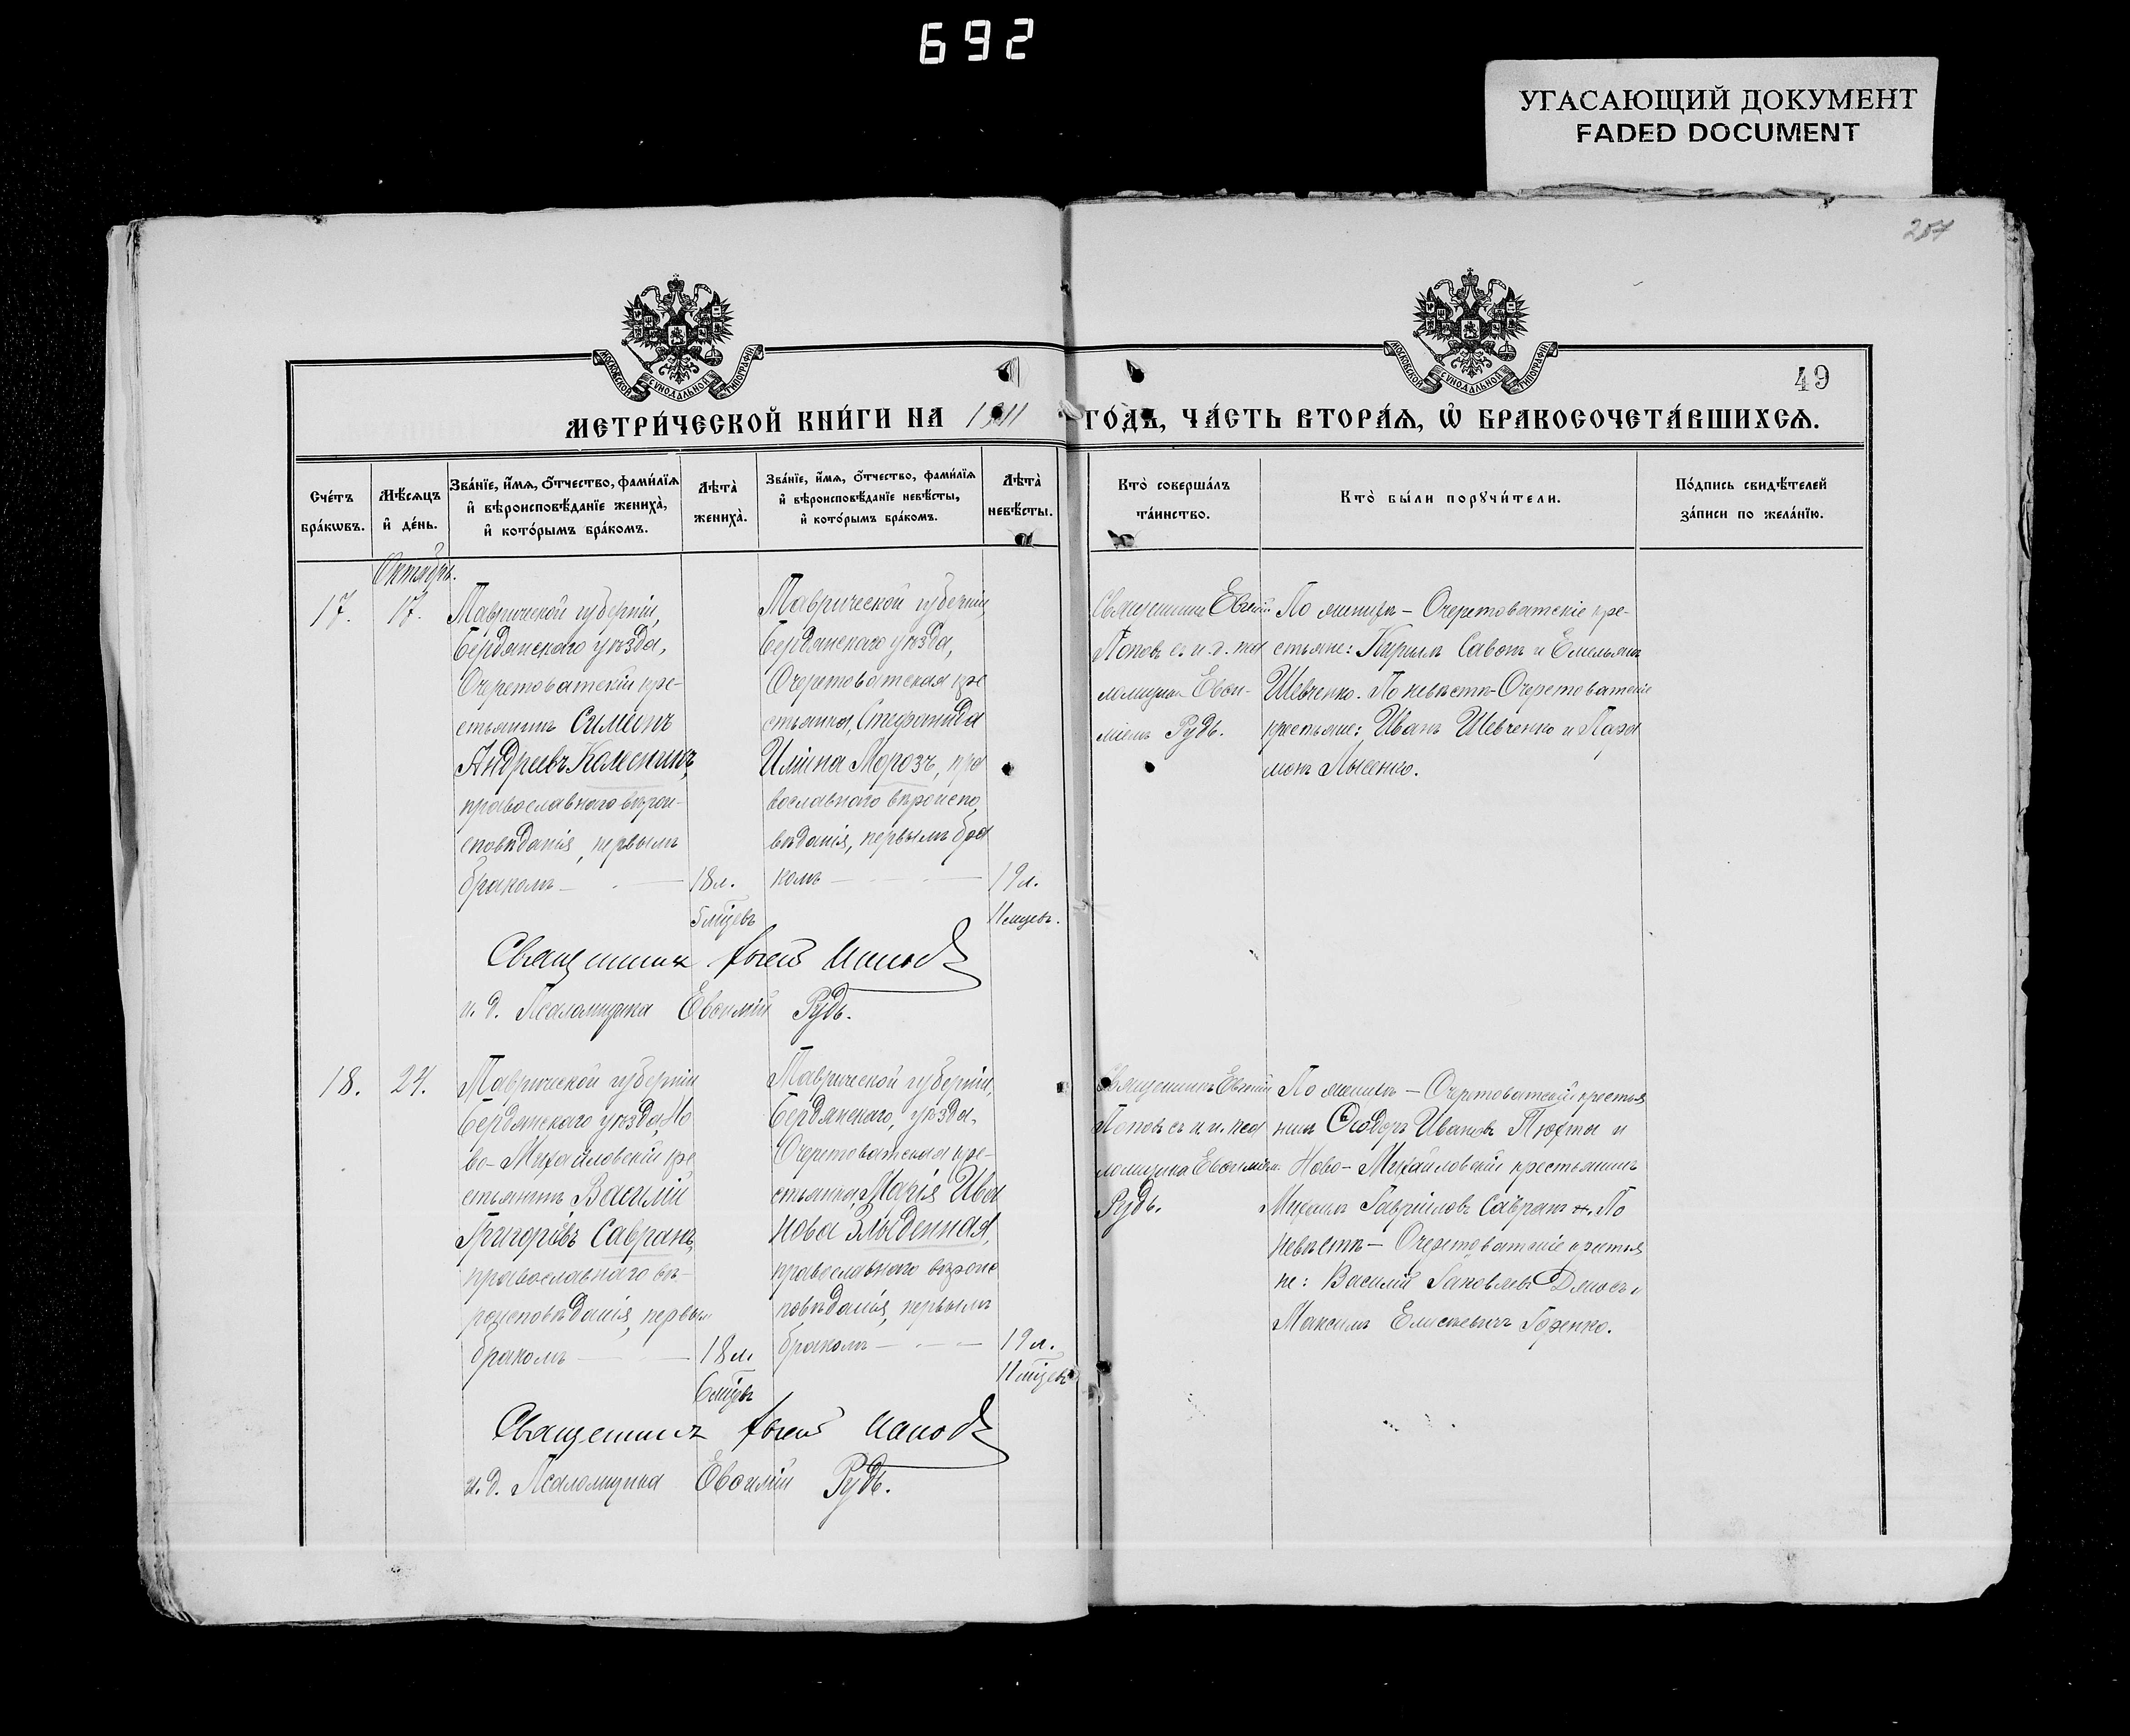 692
УГАСАЮЩИЙ ДОКУМЕНТ
FADED DOCUMENT
207
49
МЕТРИ́ЧЕСКОЙ КНИ́ГИ НА 1911 ГО́ДЪ, ЧА́СТЬ ВТОРА́Ѧ, Ѽ БРАКОСОЧЕТА́ВШИХСѦ.
Сче́тъ бра́кѡвъ.
Мѣ́сѧцъ и҆ де́нь.
Зва́нїе, и҆́мѧ, ѻ҆́тчество, фами́лїѧ и҆ вѣроисповѣ́данїе жениха̀, и҆ кото́рымъ бра́комъ.
Лѣта̀ жениха̀.
Зва́нїе, и҆́мѧ, ѻ҆́тчество, фами́лїѧ и҆ вѣроисповѣ́данїе невѣ́сты, и҆ кото́рымъ бра́комъ.
Лѣта̀ невѣ́сты.
Кто̀ соверша́лъ та́инство.
Кто̀ бы́ли порꙋчи́тели.
По́дпись свидѣ́телей за́писи по жела́нїю.
Октябрь.
17.
17.
Таврической губерніи,
Бердянскаго уѣзда,
Очеретоватскій кре-
стьянинъ Симеонъ
Андреевъ Калесникъ,
православнаго вѣрои-
сповѣданія, первымъ
бракомъ
18 л.
5 мцевъ
Таврической губерніи,
Бердянскаго уѣзда,
Очеретоватская кре
стьянка, Стефанида
Иліина Морозъ, пра
вославнаго вѣроиспо
вѣданія, первымъ бра
комъ
19 л.
11 мцевъ.
Священникъ Евгеній
Поповъ съ и. д. пса
ломщика Евѳи-
міемъ Рудь.
По женихѣ – Очеретоватскіе кре-
стьяне: Кириллъ Савонъ и Емельянъ
Шевченко. По невѣстѣ – Очеретоватскіе
крестьяне: Иванъ Шевченко и Пара
монъ Лысенко.
Священникъ Поповъ
и. д. Псаломщика Евѳимій Рудь.
18.
24.
Таврической губерніи
Бердянскаго уѣзда, Но
во-Михайловскій кре
стьянинъ Василій
Григорьевъ Савранъ,
православнаго вѣ-
роисповѣданія, первым
бракомъ
18 л.
6 мцевъ
Таврической губерніи,
Бердянскаго, уѣзда,
Очеретоватская кре-
стьянка, Марія Ива
нова Злыденная,
православнаго вѣроис
повѣданія, первымъ
бракомъ
19 л.
11 мцевъ
Священникъ Евгеній
Поповъ съ и. д. пса
ломщика Евѳиміем
Рудь.
По женихѣ – Очеретоватскій крестья
нинъ Ѳеодоръ Ивановъ Пюхта и
Ново-Михайловскій крестьянинъ
Михаилъ Гавріиловъ Савранъ. По
невѣстѣ – Очеретоватскіе крестья
не: Василій Яковлевъ и
Максимъ Елисеевичъ
Священникъ Поповъ
и. д. Псаломщика Евѳимій Рудь.